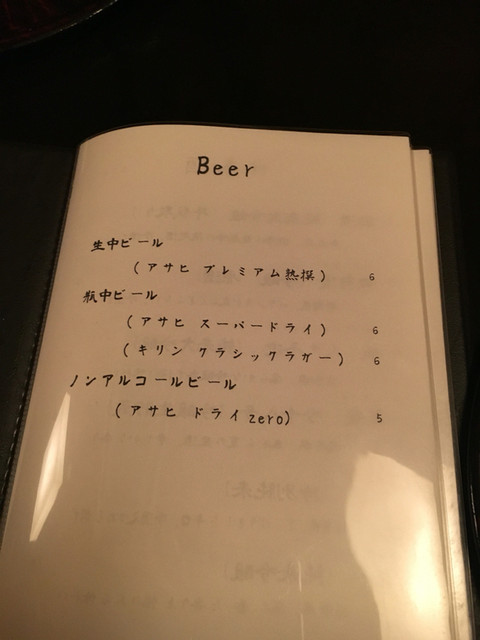 Beer
生中ビール
(アサヒ プレミアム熟撰) 6
瓶中ビール
(アサヒ スーパードライ) 6
(キリン クラシックラガー) 6
ノンアルコールビール
(アサヒ ドライzero) 5